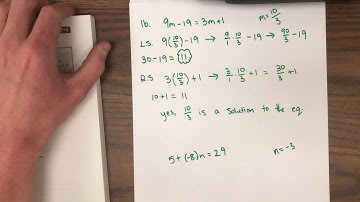 1b. 9m-19 = 3m+1 m=10/3
L.S. 9(10/3)-19 → 9/1 · 10/3 -19 → 90/3 -19
30-19 = 11
R.S 3(10/3)+1 → 3/1 · 10/3 +1 = 30/3 +1
10+1 = 11
yes 10/3 is a solution to the eq.
5+(-8)n = 29 n=-3